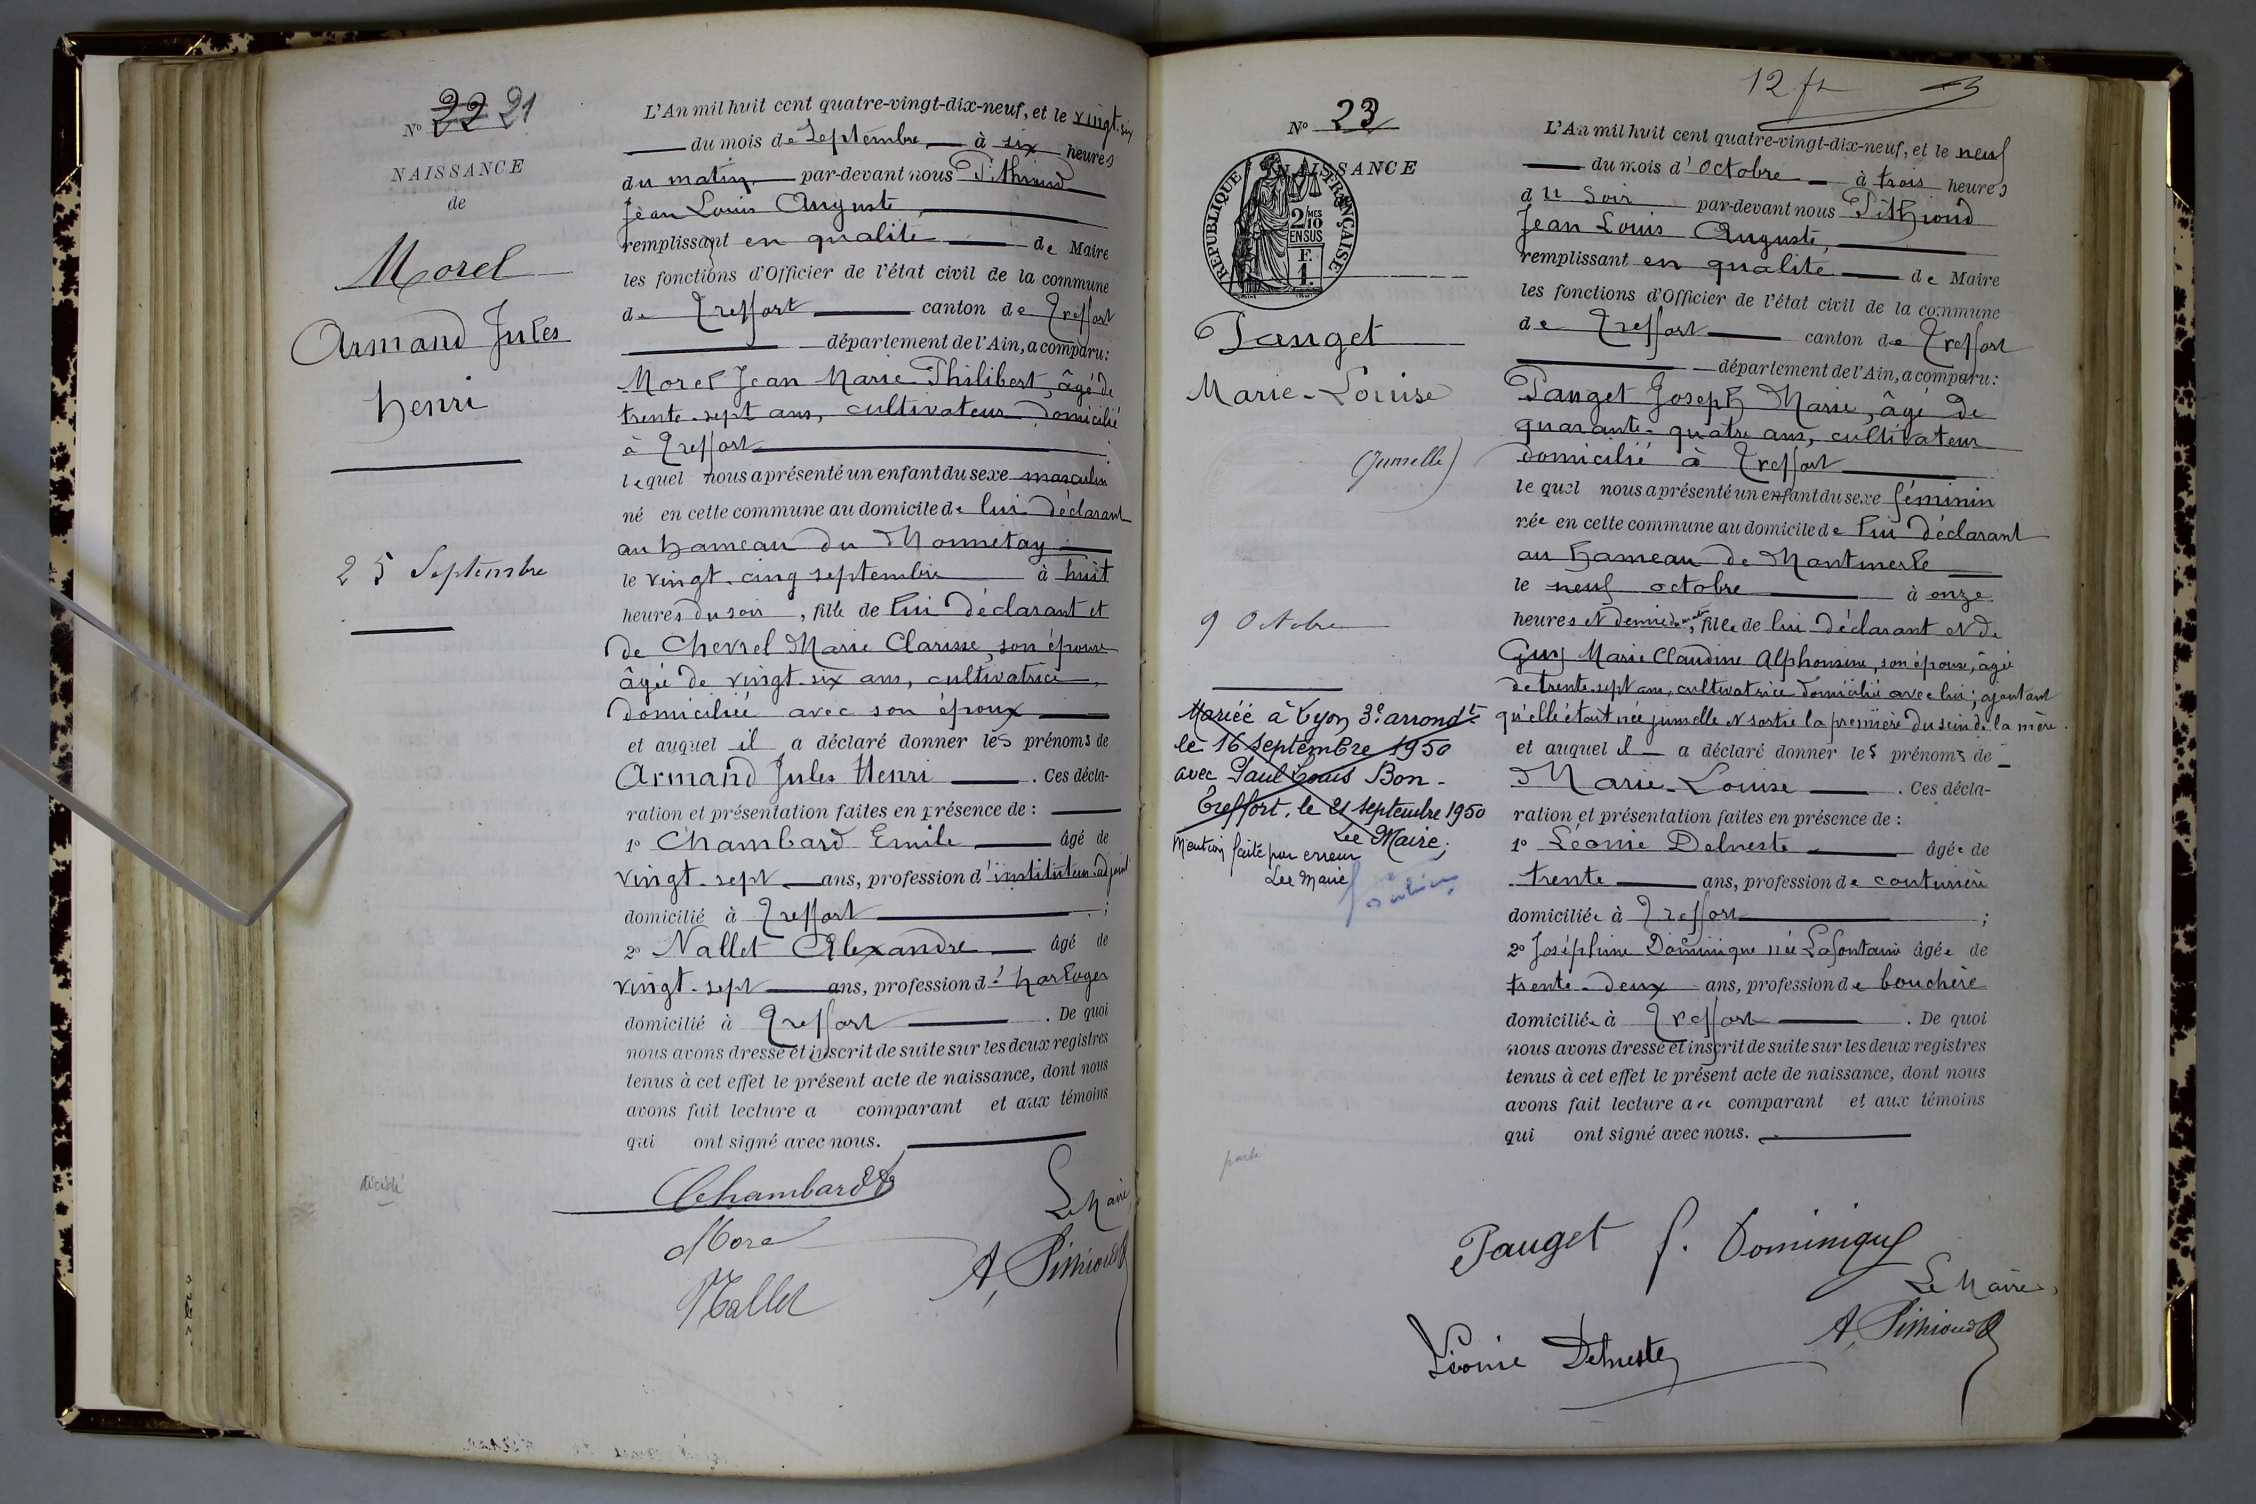 Nº 22 21
NAISSANCE
de
Morel
Armand Jules
Henri
25 Septembre
L'An mil huit cent quatre-vingt-dix-neuf, et le vingt-six
du mois de Septembre à six heures
du matin par-devant nous Pithioud
Jean Louis Auguste,
remplissant en qualité de Maire
les fonctions d'Officier de l'état civil de la commune
de Treffort canton de Treffort
département de l'Ain, a comparu:
Morel Jean Marie Philibert, âgé de
trente-sept ans, cultivateur domicilié
à Treffort
lequel nous a présenté un enfant du sexe masculin
né en cette commune au domicile de lui déclarant
au hameau du Monnetay
le vingt-cinq septembre à huit
heures du soir, fille de lui déclarant et
de Chevrel Marie Clarisse, son épouse
âgée de vingt-six ans, cultivatrice,
domiciliée avec son époux
et auquel il a déclaré donner les prénoms de
Armand Jules Henri. Ces décla-
ration et présentation faites en présence de :
1º Chambard Emile âgé de
vingt-sept ans, profession d'instituteur adjoint
domicilié à Treffort ;
2º Nallet Alexandre âgé de
vingt-sept ans, profession d'horloger
domicilié à Treffort. De quoi
nous avons dressé et inscrit de suite sur les deux registres
tenus à cet effet le présent acte de naissance, dont nous
avons fait lecture a comparant et aux témoins
qui ont signé avec nous.
EChambard
Morel
Nallet
Le Maire,
A. Pithioud
12 fr
Nº 23
NAISSANCE
RÉPUBLIQUE FRANÇAISE
2/10 MES
EN SUS
F.
1.
Pauget
Marie-Louise
(Jumelle)
9 Octobre
Mariée à Lyon, 3e arrondt
le 16 septembre 1950
avec Paul Louis Bon.
Treffort, le 21 septembre 1950
Le Maire,
Mention faite par erreur
Le Maire
L'An mil huit cent quatre-vingt-dix-neuf, et le neuf
du mois d'octobre à trois heures
du soir par-devant nous Pithioud
Jean Louis Auguste,
remplissant en qualité de Maire
les fonctions d'Officier de l'état civil de la commune
de Treffort canton de Treffort
département de l'Ain, a comparu:
Pauget Joseph Marie, âgé de
quarante-quatre ans, cultivateur
domicilié à Treffort
lequel nous a présenté un enfant du sexe féminin
née en cette commune au domicile de lui déclarant
au hameau de Montmerle
le neuf octobre à onze
heures et demie du matin, fille de lui déclarant et de
Guy Marie Claudine Alphonsine, son épouse, âgée
de trente-sept ans, cultivatrice domiciliée avec lui; ajoutant
qu'elle était née jumelle et sortie la première du sein de la mère.
et auquel il a déclaré donner les prénoms de
Marie-Louise. Ces décla-
ration et présentation faites en présence de :
1º Léonie Delneste âgée de
trente ans, profession de couturière
domiciliée à Treffort ;
2º Joséphine Dominique née Lafontaine âgée de
trente-deux ans, profession de bouchère
domiciliée à Treffort. De quoi
nous avons dressé et inscrit de suite sur les deux registres
tenus à cet effet le présent acte de naissance, dont nous
avons fait lecture au comparant et aux témoins
qui ont signé avec nous.
Pauget J. Dominique
Le Maire,
A. Pithioud
Léonie Delneste